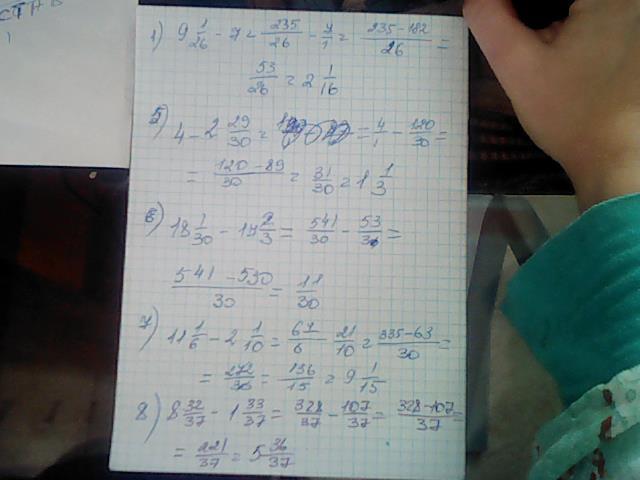 1) 9 1/26 - 7 = 235/26 - 7/1 = 235-182/26 =
53/26 = 2 1/16
5) 4 - 2 29/30 = = 4/1 - 120/30 =
= 120-89/30 = 31/30 = 1 1/3
6) 18 1/30 - 17 2/3 = 541/30 - 53/3 =
541-530/30 = 11/30
7) 11 1/6 - 2 1/10 = 67/6 21/10 = 335-63/30 =
= 272/30 = 136/15 = 9 1/15
8) 8 32/37 - 1 33/37 = 328/37 - 107/37 = 328-107/37 =
= 221/37 = 5 36/37